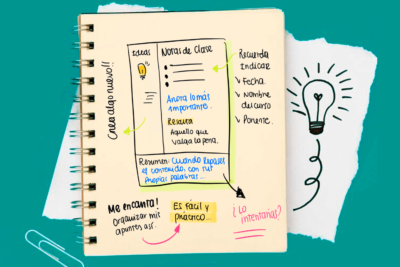 Crea algo nuevo!!
Ideas
Notas de Clase
Ahora lo más
importante.
Resalta
Aquello que
valga la pena.
Resumen: Cuando Repases
el contenido, con tus
propias palabras...
Recuerda
Indicar
Fecha
Nombre
del curso
Ponente.
Me encanta!
Organizar mis
apuntes así.
Es fácil y
práctico...
¿Lo
intentarías?